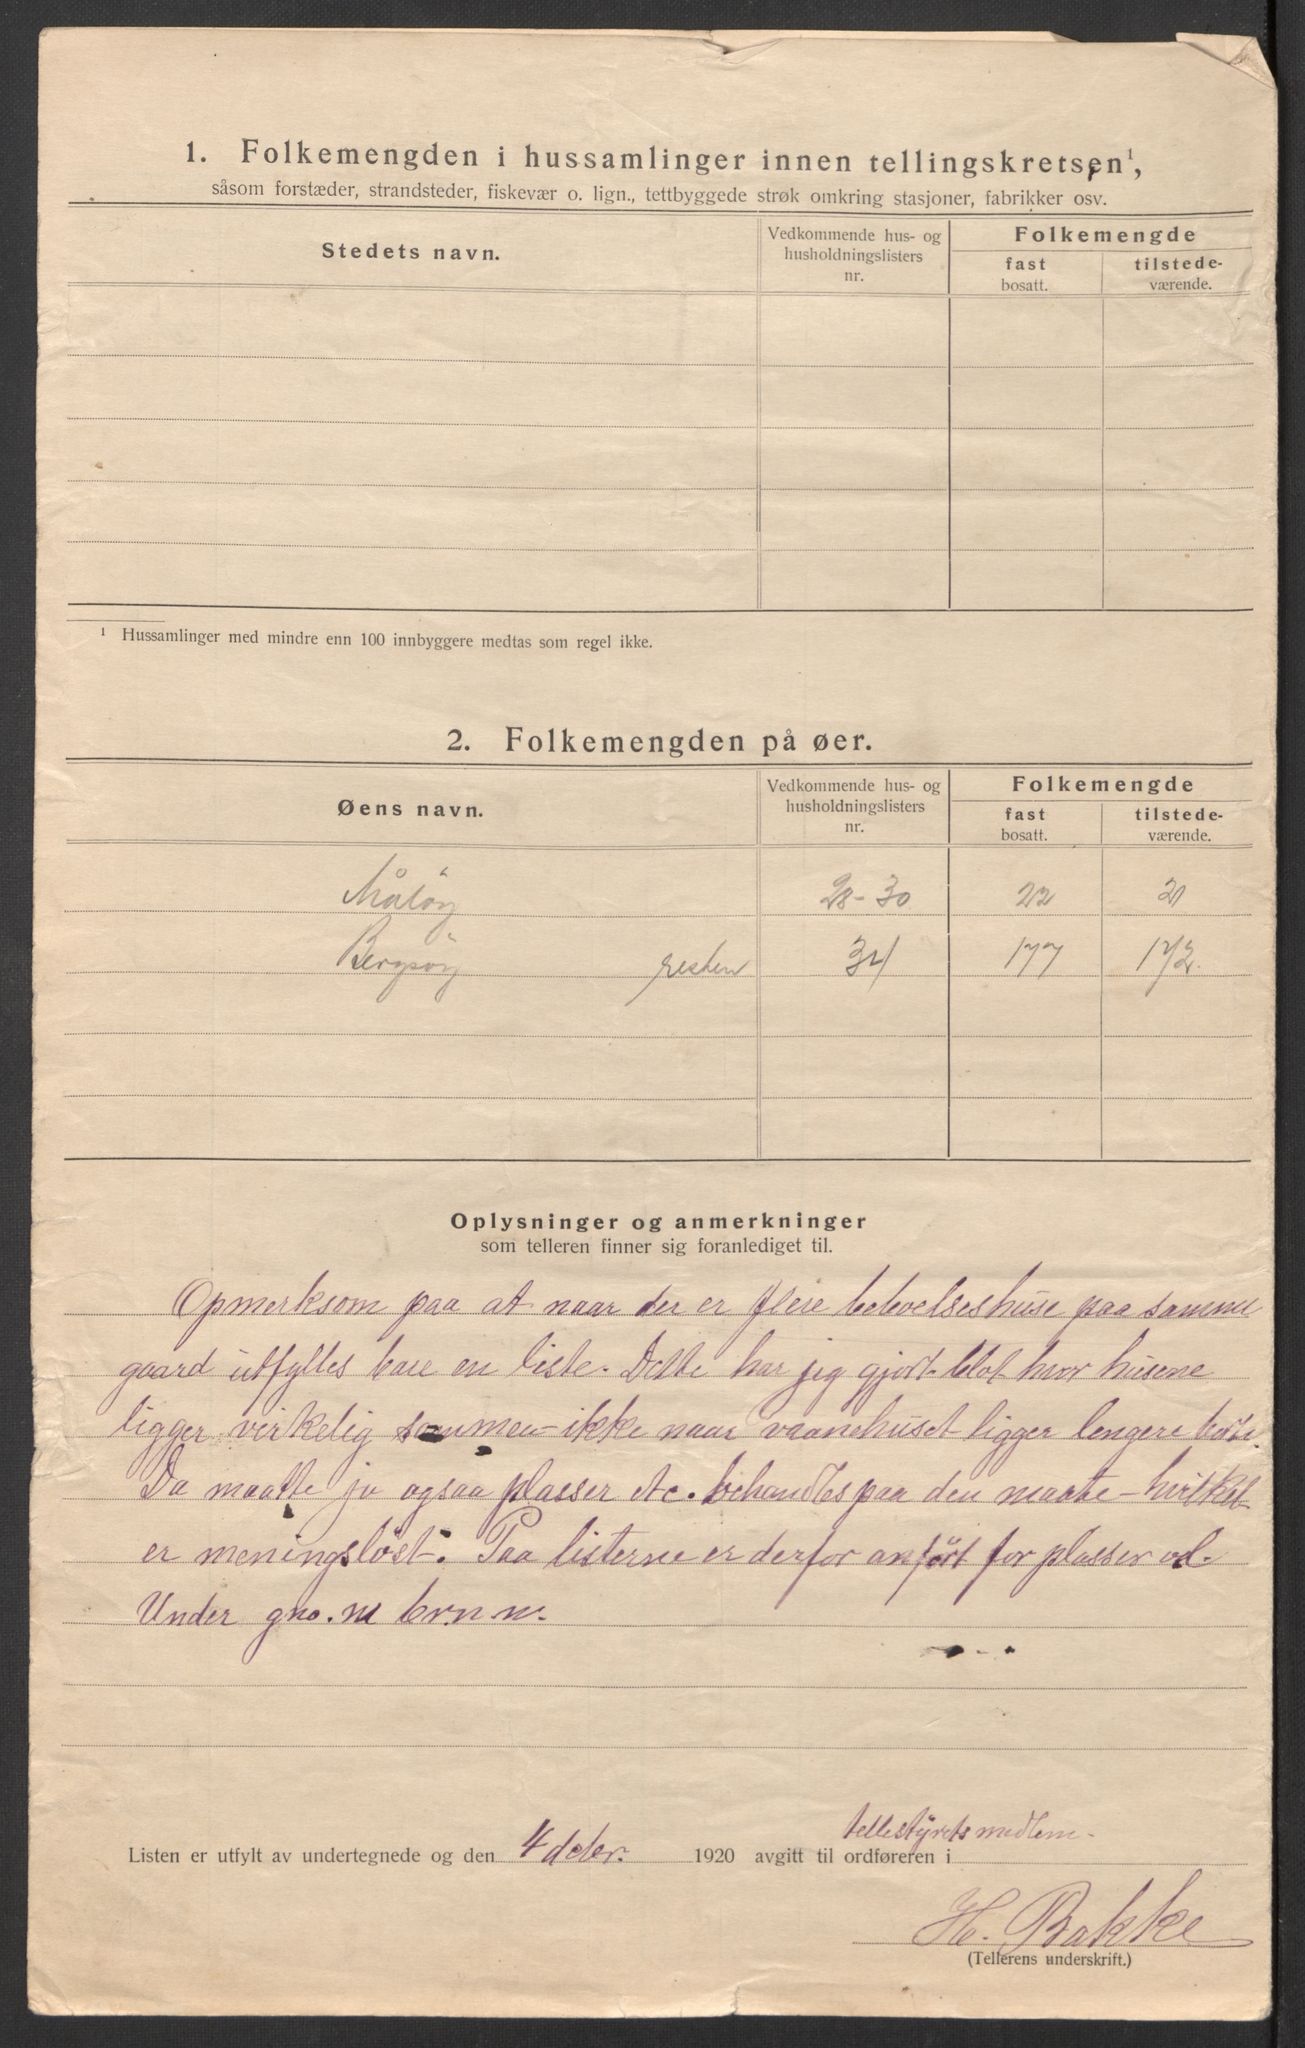 1. Folkemengden i hussamlinger innen tellingskretsen¹,
såsom forstæder, strandsteder, fiskevær o. lign., tettbyggede strøk omkring stasjoner, fabrikker osv.
Stedets navn.
Vedkommende hus- og
husholdningslisters
nr.
Folkemengde
fast
bosatt.
tilstede-
værende.
¹ Hussamlinger med mindre enn 100 innbyggere medtas som regel ikke.
2. Folkemengden på øer.
Øens navn.
Vedkommende hus- og
husholdningslisters
nr.
Folkemengde
fast
bosatt.
tilstede-
værende.
Måløy 28-30 22 21
Bergsöy resten 34 177 172.
Oplysninger og anmerkninger
som telleren finner sig foranlediget til.
Opmerksom paa at naar der er flere beboelseshuse paa samme
gaard utfylles bare en liste. Dette har jeg gjort blot hvor husene
ligger virkelig sammen - ikke naar vaanehuset ligger lengere borte.
Da maatte jo ogsaa plasser etc. behandles paa den maate - hvilket
er meningsløst. Paa listerne er derfor anført for plasser
Under gno. m br.n.
Listen er utfylt av undertegnede og den 4 deber. 1920 avgitt til ordføreren i tellestyrets medlem.
H. Bakke
(Tellerens underskrift.)